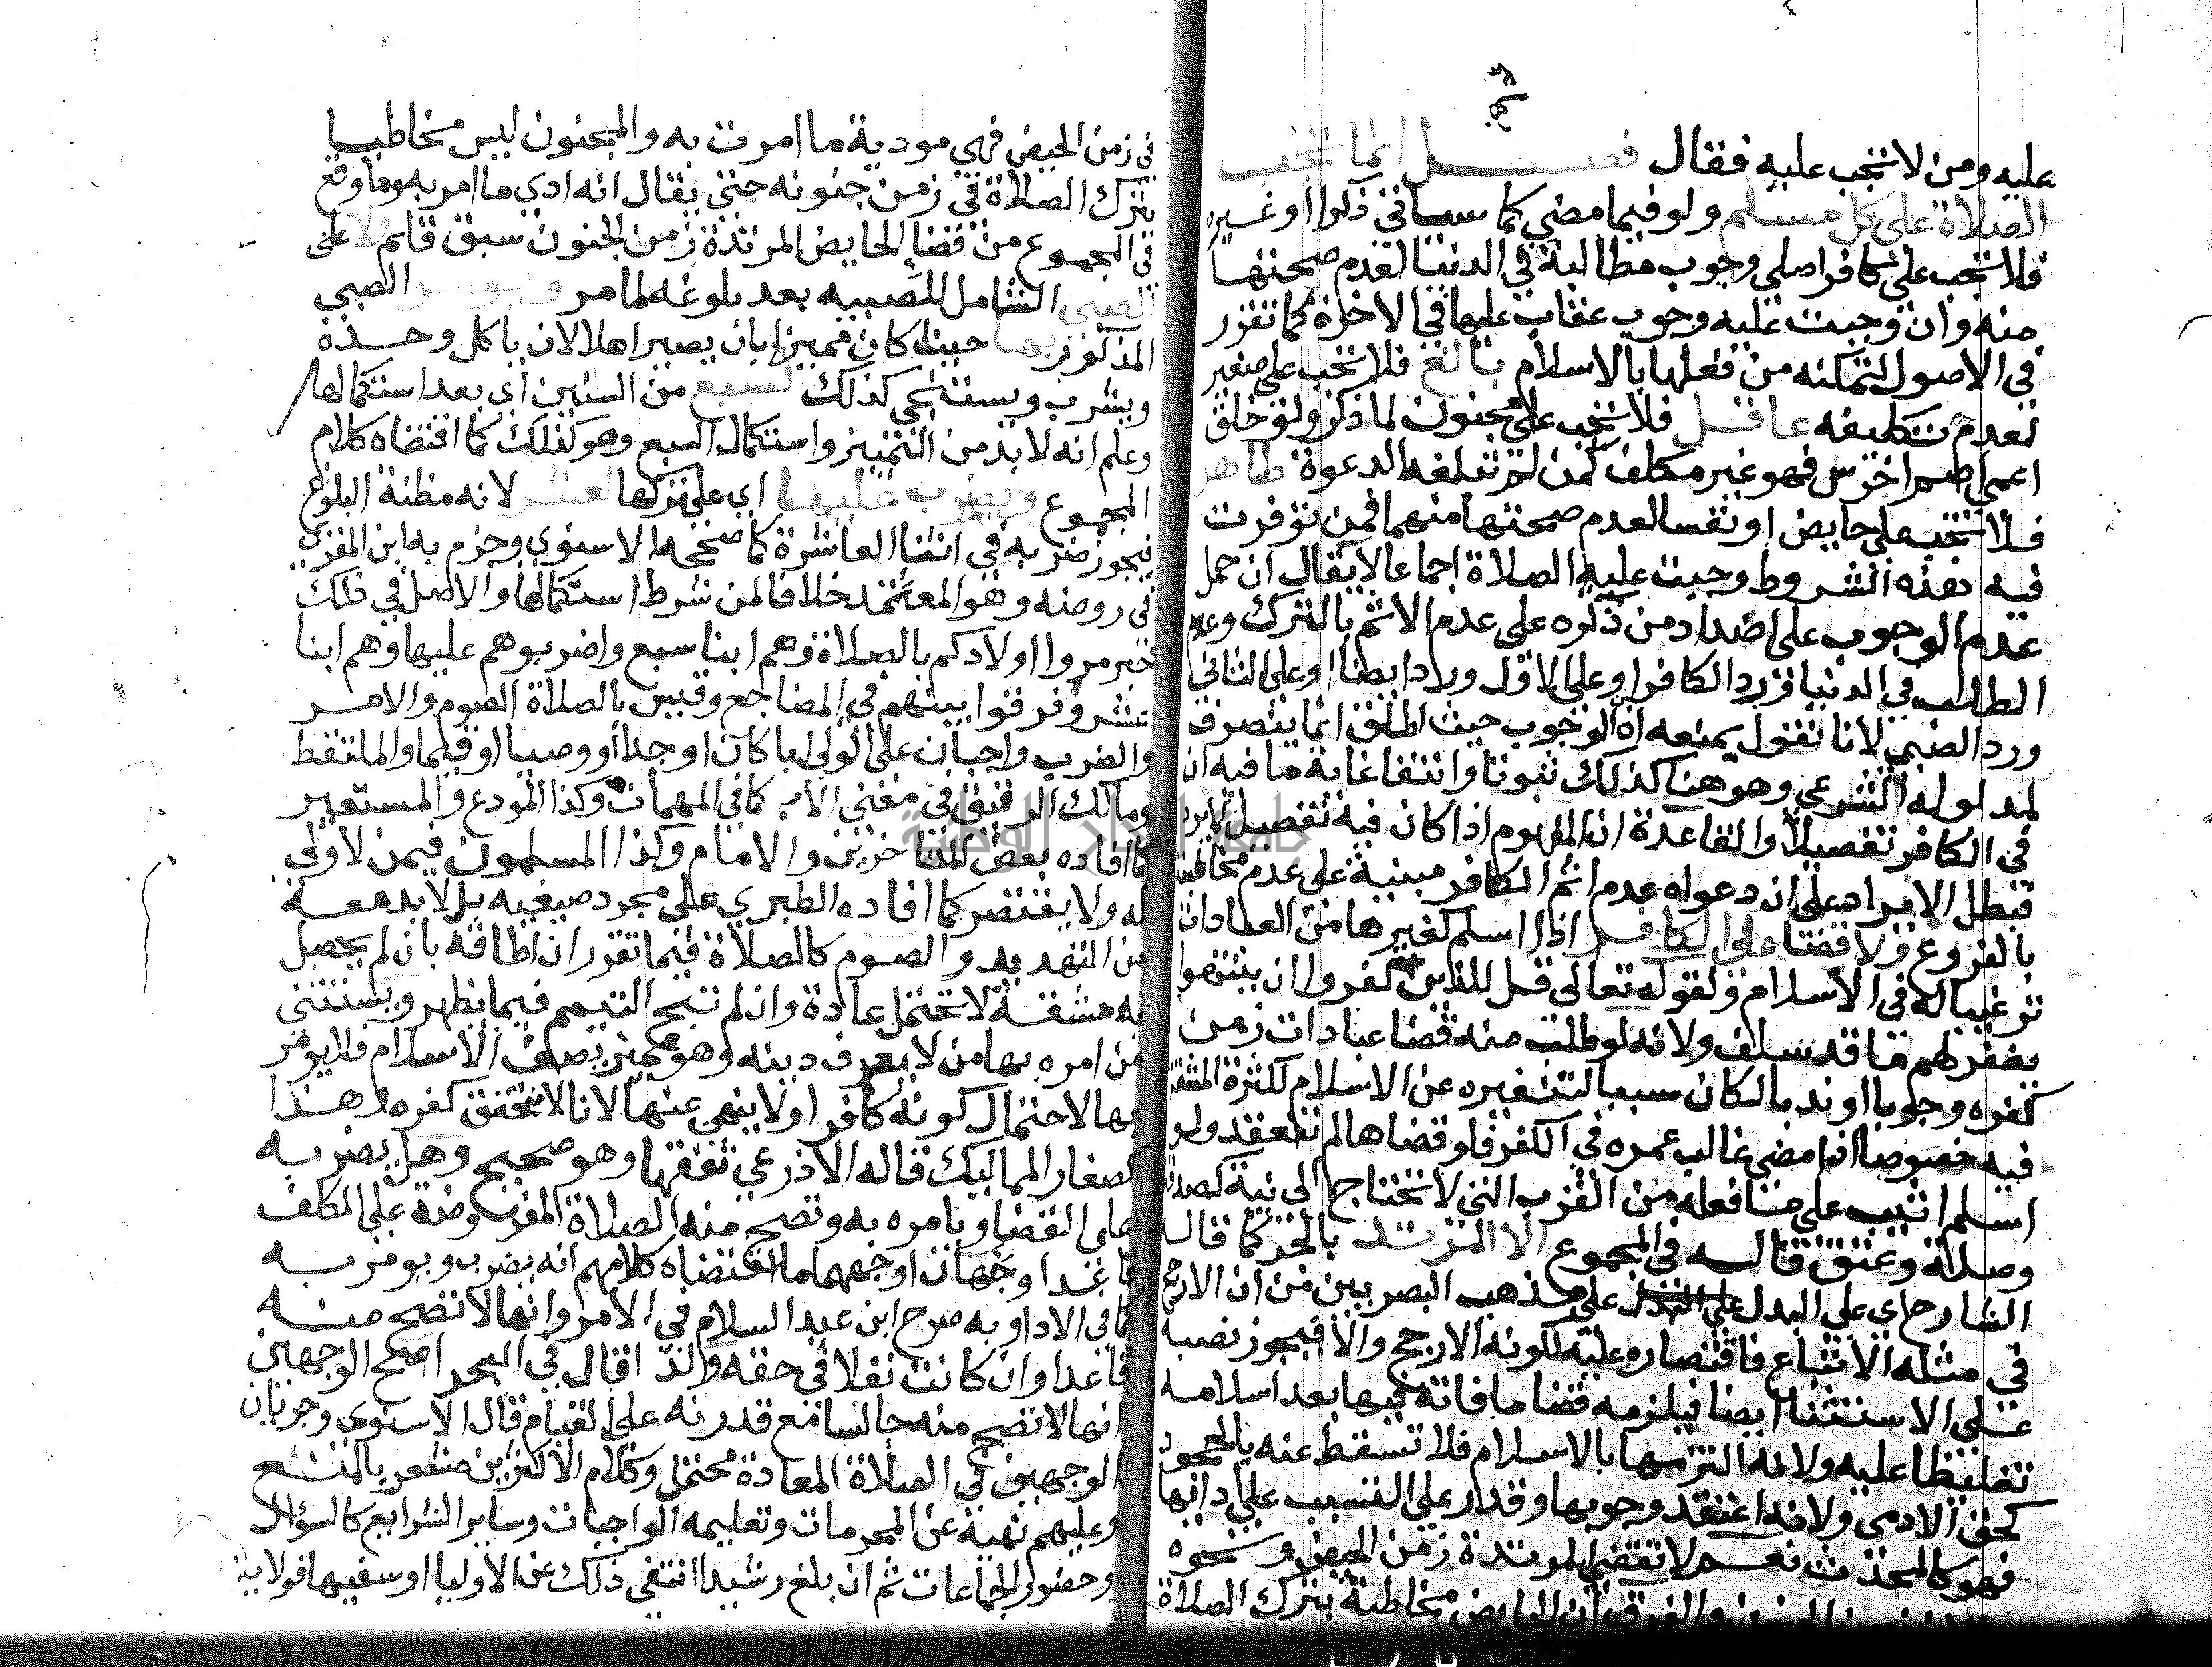 عليه ومن لا تجب عليه فقال فصل انما تجب
الصلاة على كل مسلم ولو فيما مضى كما سياتى ذكرا او غيره
فلا تجب على كافر اصلى وجوب مطالبة في الدنيا لعدم صحتها
منه وان وجبت عليه وجوب عقاب عليها في الاخرة كما تقرر
في الاصول لتمكنه من فعلها بالاسلام بالغ فلا تجب على صغير
لعدم تكليفه عاقل فلا تجب على مجنون لما ذكر ولو خلق
اعمى اصم اخرس فهو غير مكلف كمن لم تبلغه الدعوة طاهر
فلا تجب على حايض او نفسا لعدم صحتها منهما فمن توفرت
فيه هذه الشروط وجبت عليه الصلاة اجماعا لا يقال ان حمل
عدم الوجوب على اضداد من ذكره على عدم الاثم بالترك وعدم
الطلب في الدنيا فرد الكافر او على الاول ورد ايضا او على الثاني
ورد الصبي لانا نقول يمنعه ان الوجوب حيث اطلق انما ينصرف
لمدلوله الشرعي وهو هنا كذلك ثبوتا وانتفا غاية ما فيه ان
في الكافر تفصيلا والقاعدة ان المفهوم اذا كان فيه تفصيل لا يرد
فبطل الايراد على ان دعواه عدم اثم الكافر مبنية على عدم مخاطبته
بالفروع ولا قضا على الكافر اذا اسلم كغيرها من العبادات
ترغيبا له في الاسلام ولقوله تعالى قل للذين كفروا ان ينتهوا
يغفر لهم ما قد سلف ولانه لو طلب منه قضا عبادات زمن
كفره وجوبا او ندبا لكان سببا لتنفيره عن الاسلام لكثرة المشقة
فيه خصوصا اذا مضى غالب عمره في الكفر فلو قضاها لم تنعقد ولو
اسلم اثيب على ما فعله من القرب التي لا تحتاج الى نية كصدقة
وصلة وعتق قاله في المجموع الا المرتد بالجر كما قاله
الشارح اى على البدل على مذهب البصريين من ان الارجح
في مثله الاتباع فاقتصاره عليه لكونه الارجح والا فيجوز نصبه
على الاستثنا ايضا فيلزمه قضا ما فاته فيها بعد اسلامه
تغليظا عليه ولانه التزمها بالاسلام فلا تسقط عنه بالجحود
كحق الادمى ولانه اعتقد وجوبها وقدر على التسبب على ادائها
فهو كالمحدث نعم لا تقضى المرتدة زمن الحيض ونحوه
والفرق ان الحايض مخاطبة بترك الصلاة
في زمن الحيض فهي مودية ما امرت به والمجنون ليس مخاطبا
بترك الصلاة في زمن جنونه حتى يقال انه ادى ما امر به وما وقع
في المجموع من قضا الحايض المرتدة زمن الجنون سبق قلم ولا على
الصبي الشامل للصبية بعد بلوغه لما مر ويومر الصبي
المذكور بها حيث كان مميزا بان يصير اهلا لان ياكل وحده
ويشرب ويستنجي كذلك لسبع من السنين اي بعد استكمالها
وعلم انه لا بد من التمييز واستكمال السبع وهو كذلك كما اقتضاه كلام
المجموع ويضرب عليها اي على تركها لعشر لانه مظنة البلوغ
فيجوز ضربه في اثنا العاشرة كما صححه الاسنوي وجزم به ابن المقري
في روضه وهو المعتمد خلافا لمن شرط استكمالها والاصل في ذلك
خبر مروا اولادكم بالصلاة وهم ابنا سبع واضربوهم عليها وهم ابنا
عشر وفرقوا بينهم في المضاجع وقيس بالصلاة الصوم والامر
والضرب واجبان على الولي ابا كان او جدا او وصيا او قيما والملتقط
ومالك الرقيق في معنى الاب كما في المهمات وكذا المودع والمستعير
كما افاده بعض المتاخرين والامام وكذا المسلمون فيمن لا ولي
له ولا يقتصر كما افاده الطبري على مجرد صيغته بل لا بد معه
من التهديد والصوم كالصلاة فيما تقرر ان اطاقه بان لم يحصل
به مشقة لا تحتمل عادة وان لم تبح التيمم فيما يظهر ويستثنى
من امره بها من لا يعرف دينه وهو مميز يصف الاسلام فلا يومر
بها لاحتمال كونه كافرا ولا ينهى عنها لانا لا نتحقق كفره وهذا
كصغار المماليك قاله الاذرعي تفقها وهو صحيح وهل يضربه
على القضا ويامره به وتصح منه الصلاة المفروضة على المكلف
قاعدا وجهان اوجههما ما اقتضاه كلامهم انه يضرب ويومر به
كما في الادا وبه صرح ابن عبد السلام في الامر وانها لا تصح منه
قاعدا وان كانت نفلا في حقه ولذا قال في البحر اصح الوجهين
انها لا تصح منه جالسا مع قدرته على القيام قال الاسنوي وجريان
الوجهين في الصلاة المعادة محتمل وكلام الاكثرين مشعر بالمنع
وعليهم نهيه عن المحرمات وتعليمه الواجبات وساير الشرايع كالسؤال
وحضور الجماعات ثم ان بلغ رشيدا انتفى ذلك عن الاوليا او سفيها فولاية